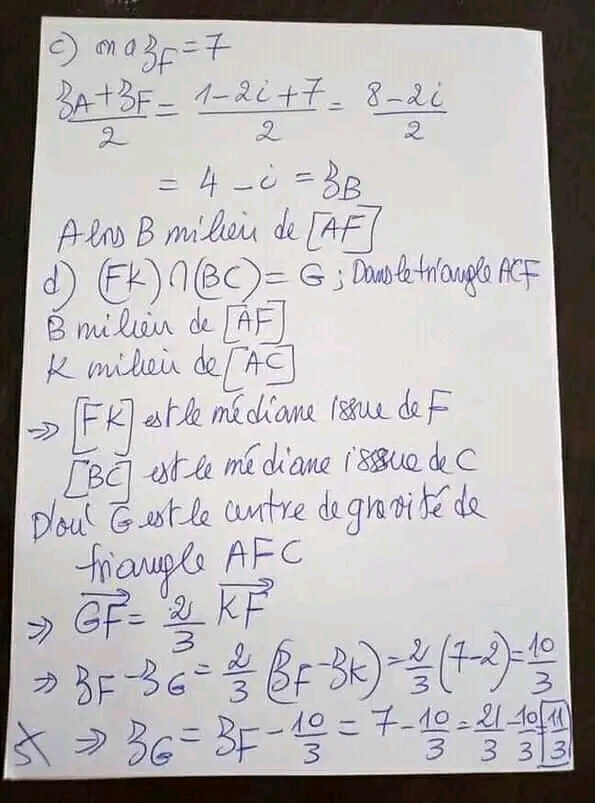 c) on a zF = 7
(zA + zF)/2 = (1-2i+7)/2 = (8-2i)/2
= 4 - i = zB
Alors B milieu de [AF]
d) (FK) ∩ (BC) = G ; Dans le triangle ACF
B milieu de [AF]
K milieu de [AC]
⇒ [FK] est le médiane issue de F
[BC] est le médiane issue de C
D'où G est le centre de gravité de
triangle AFC
⇒ GF→ = 2/3 KF→
⇒ zF - zG = 2/3 (zF - zK) = 2/3 (7-2) = 10/3
⇒ zG = zF - 10/3 = 7 - 10/3 = 21/3 - 10/3 = 11/3